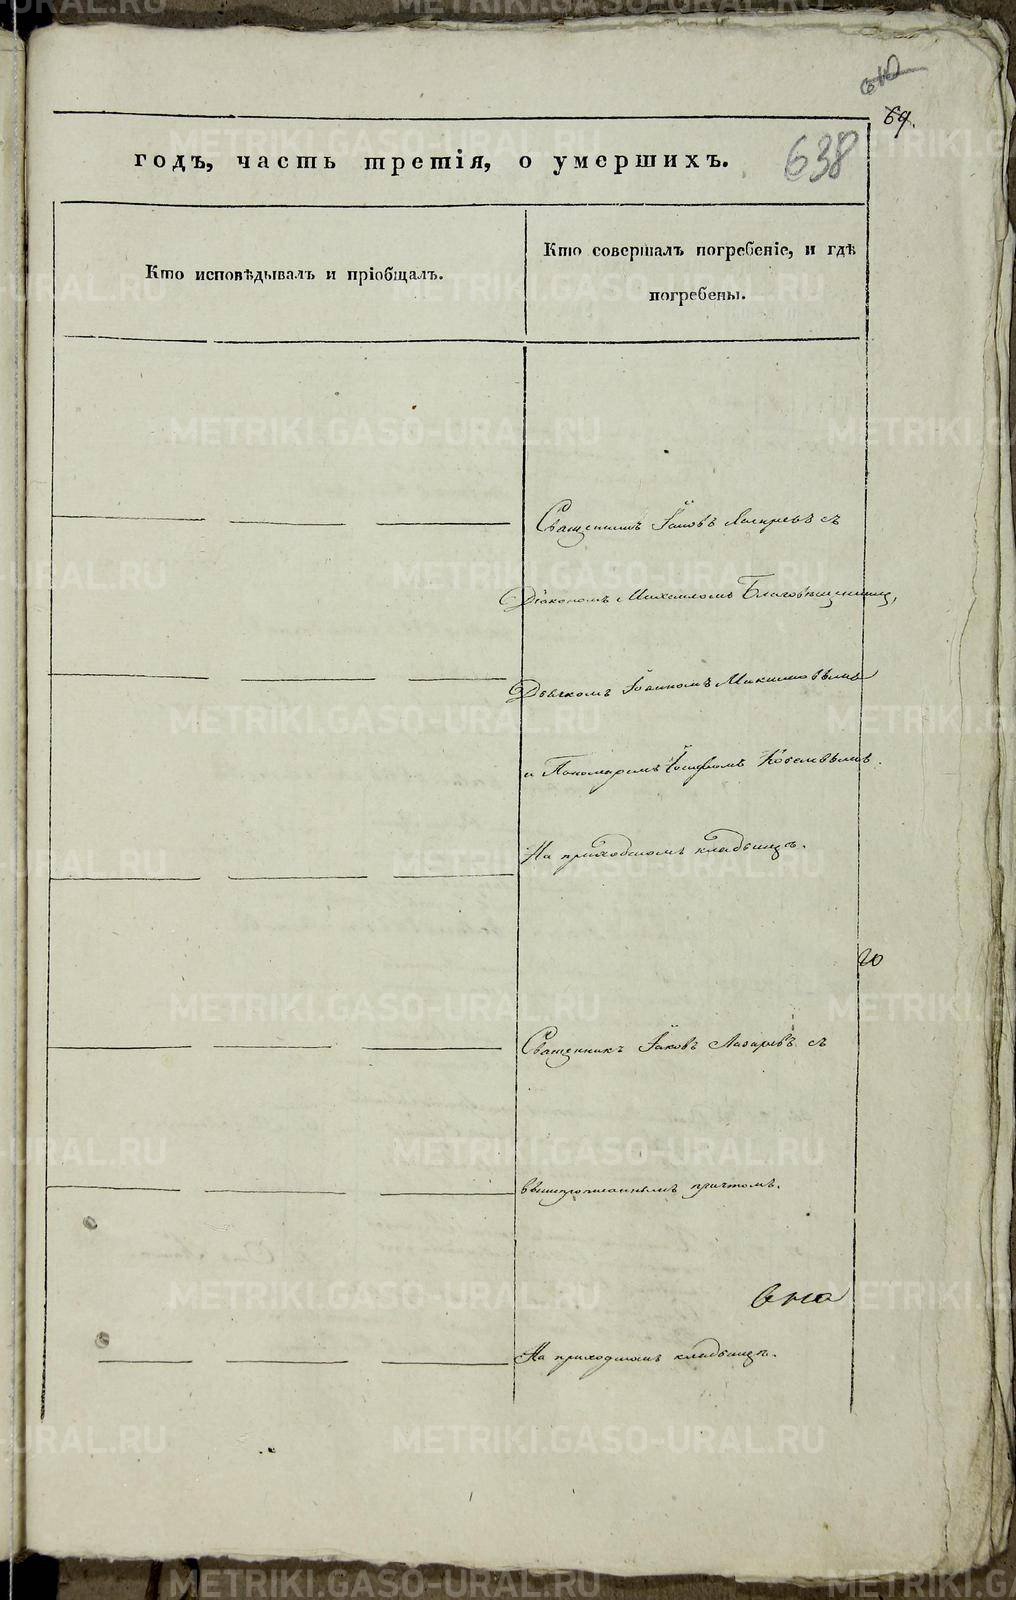 69.
638
годъ, часть третія, о умершихъ.
Кто исповѣдывалъ и пріобщалъ.
Кто совершалъ погребеніе, и гдѣ
погребены.
Священникъ Іаковъ Лазаревъ съ
Діакономъ Михаиломъ Благовѣщенскимъ,
Дьячкомъ Іоанномъ Максимовымъ
и Пономаремъ Іосифомъ
На приходскомъ кладбищѣ.
Священникъ Іаковъ Лазаревъ съ
вышеписаннымъ причтомъ.
На приходскомъ кладбищѣ.
METRIKI.GASO-URAL.RU